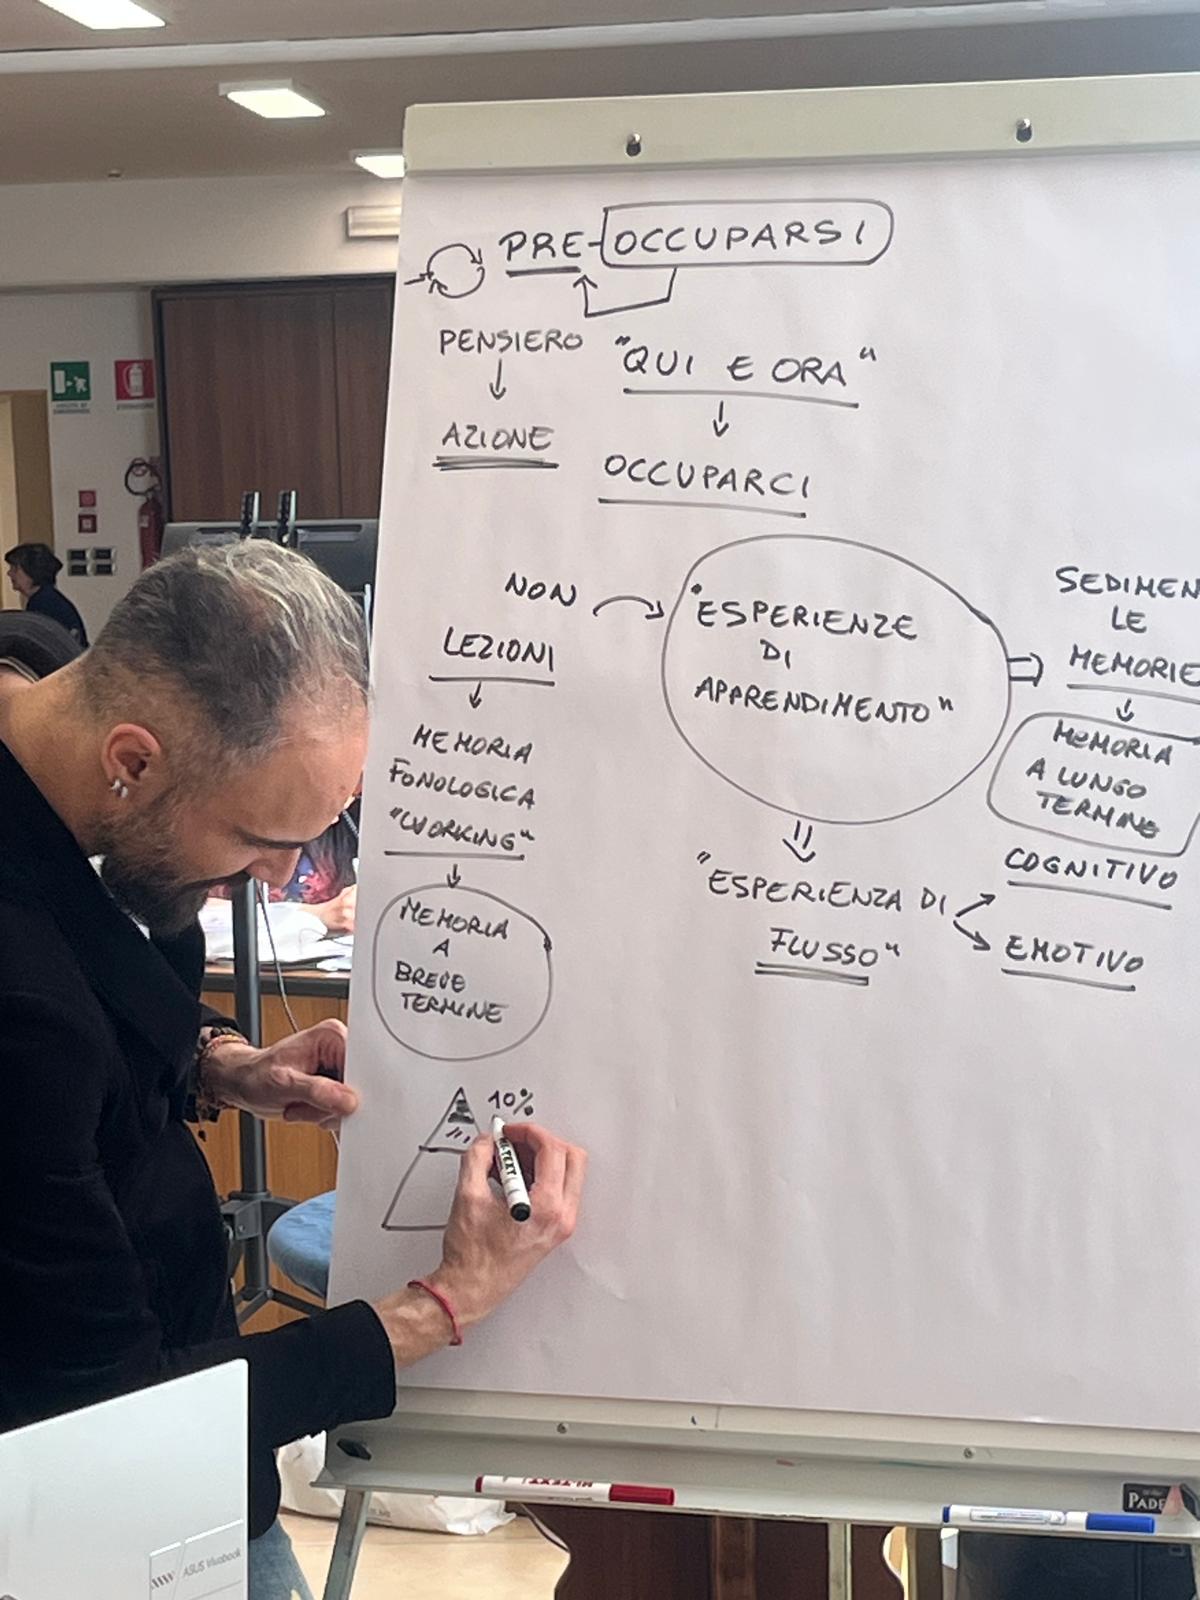 PRE-OCCUPARSI
PENSIERO
AZIONE
"QUI E ORA"
OCCUPARCI
NON
LEZIONI
MEMORIA
FONOLOGICA
"WORKING"
MEMORIA
A
BREVE
TERMINE
10%
"ESPERIENZE
DI
APPRENDIMENTO"
"ESPERIENZA DI
FLUSSO"
SEDIMEN
LE
MEMORIE
MEMORIA
A LUNGO
TERMINE
COGNITIVO
EMOTIVO
ASUS Vivobook